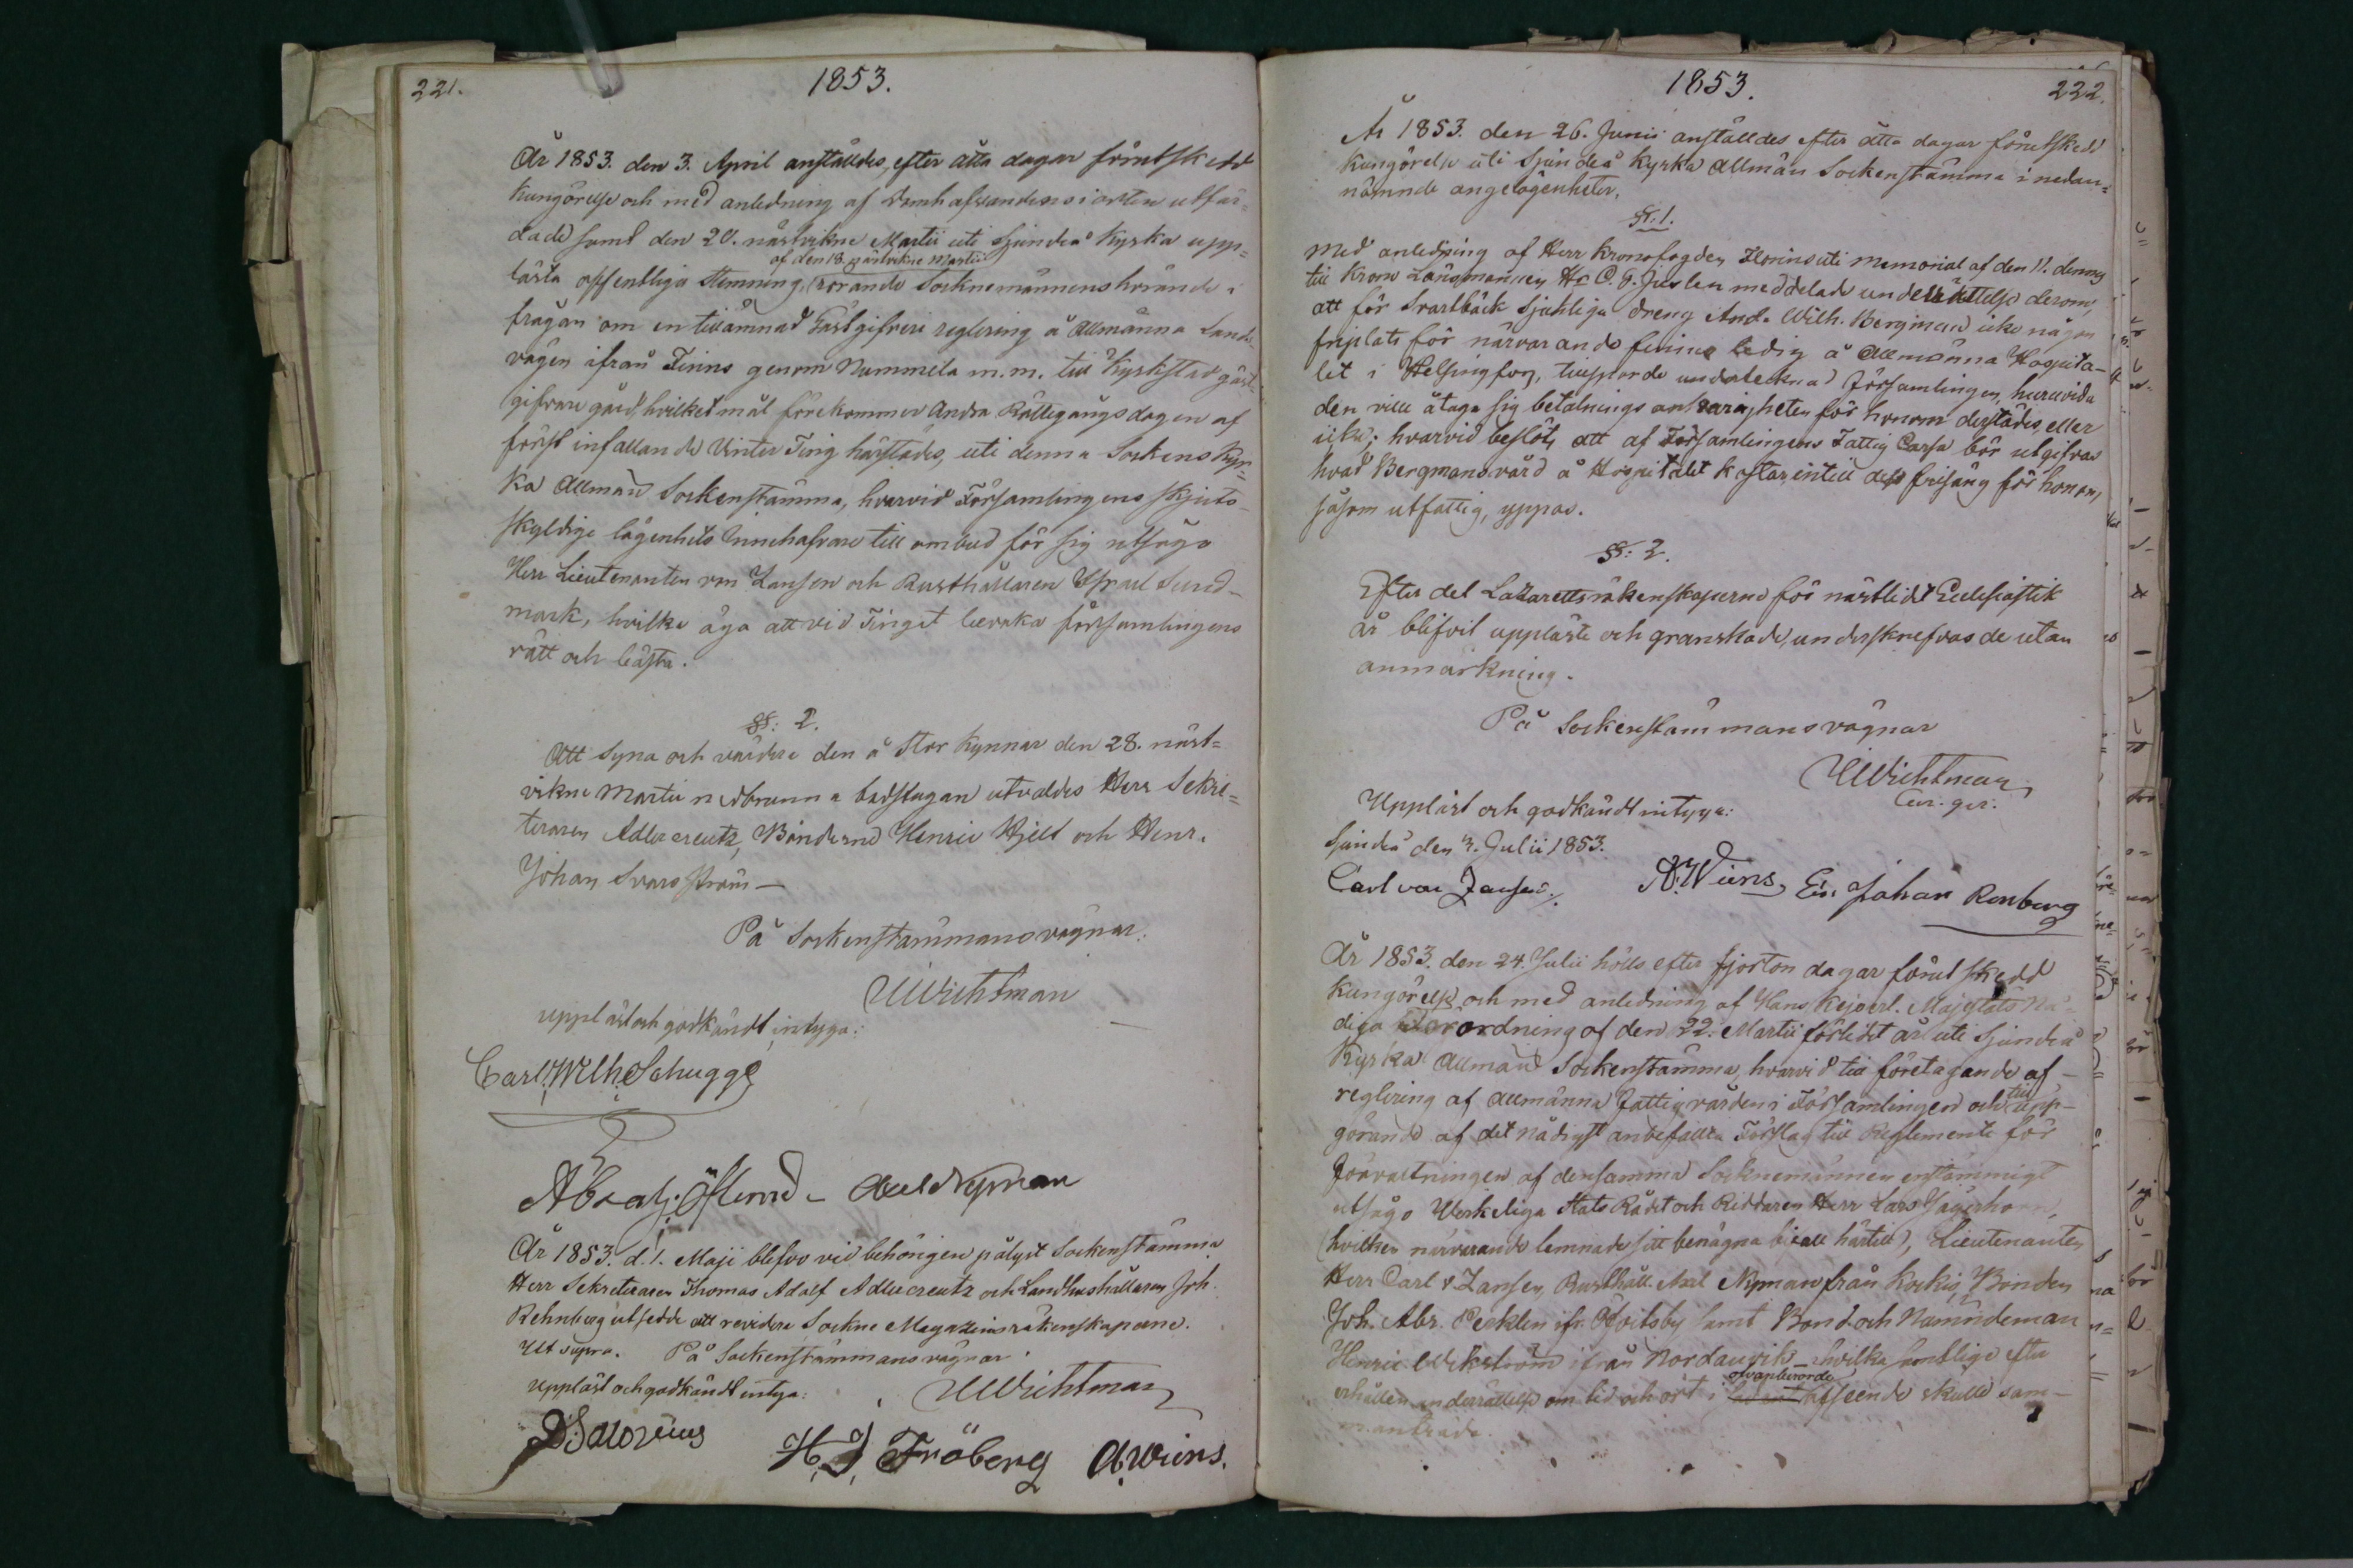 221.
1853.
År 1853. den 3. April anställdes, efter åtta dagar förutskedd
kungörelse och med anledning af Domhafvandens i orten utfär=
dade samt den 20. nästvikne Martii uti Sjundeå Kyrka upp=
af den 18. nästvikne Martii
lästa offentliga Stemning, rörande Socknemännens hörande i
frågan om en tillämnad Gästgifveri reglering å Allmänna Lands-
vägen ifrån Finns genom Nummela m.m. till Kyrkstad gäst-
gifvare gård, hvilket mål förekommer Andra Rättegångsdagen af
först infallande Vinter Ting härstädes, uti denna Sockens Kyr=
ka Allmän Sockenstämma, hvarvid Församlingens skjuts-
skyldige lägenhets Innehafvare till ombud för sig utsågo
Herr Lieutenanten von Zansen och Rusthållaren Israel Sund-
mark, hvilka äga att vid Tinget bevaka församlingens
rätt och bästa.
§§: 2.
Att syna och värdera den å Stor Kynnar den 28. näst=
vikne Martii nedbrunna badstugan utvaldes Herr Sekre=
teraren Adlercreutz, Bönderne Henric Hjelt och Henr.
Johan Svarsström —
På Sockenstämmans vägnar:
UWichtman
uppläst och godkändt, intyga:
Carl Wilh. Schugge
Abrah: Öster - Axel Nyman
År 1853. d. 1. Maji blefvo vid behörigen pålyst Sockenstämma
Herr Sekreteraren Thomas Adolf Adlercreutz och Landbushållaren Joh.
Rehnberg utsedde att revidera Sockne Magazins räkenskaperne.
Ut supra. På Sockenstämmans vägnar
Uppläst och godkändt intyga:
UWichtman
H J Fröberg A. Wiens.
1853.
222.
År 1853. den 26. Junii anställdes efter åtta dagar förutskedd
kungörelse uti Sjundeå Kyrka Allmän Sockenstämma i nedan=
nämnde angelägenheter.
§§. 1.
Med anledning af Herr Kronofogden uti Memorial af den 11. dennes
till Krono Länsmannen Hr C. G. meddelade underrättelse derom,
att för Svartbäck sjuklige dreng And. Wilh. Bergman icke någon
friplats för närvarande finnes ledig å Allmänna Hospita-
let i Helsingfors, tillsporde undertecknad Församlingen, huruvida
den ville åtaga sig betalnings ansvarigheten för honom derstädes, eller
icke; hvarvid beslöts att af Församlingens Fattig Cassa bör utgifvas
hvad Bergmans vård å Hospitalet kostar intill dess frisäng för honom,
såsom utfattig, yppas.
§§: 2.
Efter det Lazarettsräkenskaperne för nästlidet Ecclesiastik
år blifvit upplästa och granskade, underskrefvos de utan
anmärkning.
På Sockenstämmans vägnar
UWichtman
Uppläst och godkändt intyga:
Sjundeå den 3. Julii 1853.
Carl von Zansen. A. Wiens, Er. Johan Renberg
År 1853. den 24. Julii hölls efter fjorton dagar förutskedd
kungörelse och med anledning af Hans Kejserl. Majestäts Nå=
diga Förordning af den 22. Martii förlidet år uti Sjundeå
Kyrka Allmän Sockenstämma, hvarvid till företagande af
till
reglering af Allmänna Fattigvården i Församlingen och upp-
görande af det nådigst anbefallta Förslag till Reglemente för
Förvaltningen af densamma Socknemännen enstämmigt
utsågo Verkeliga Stats Rådet och Riddaren Herr Lars Jägerhorn,
(hvilken närvarande lemnade sitt benägna bifall härtill), Lieutenanten
Herr Carl v. Zansen, Rusthåll. Axel Nyman från Kockis, Bonden
Joh. Abr. Pecklin ifr. samt Bond. och Nämndeman
Henric Wickström ifrån Nordanvik - hvilka samtlige efter
ofvanberörde
erhållen underrättelse om tid och ort i afseende skulle sam-
manträda.